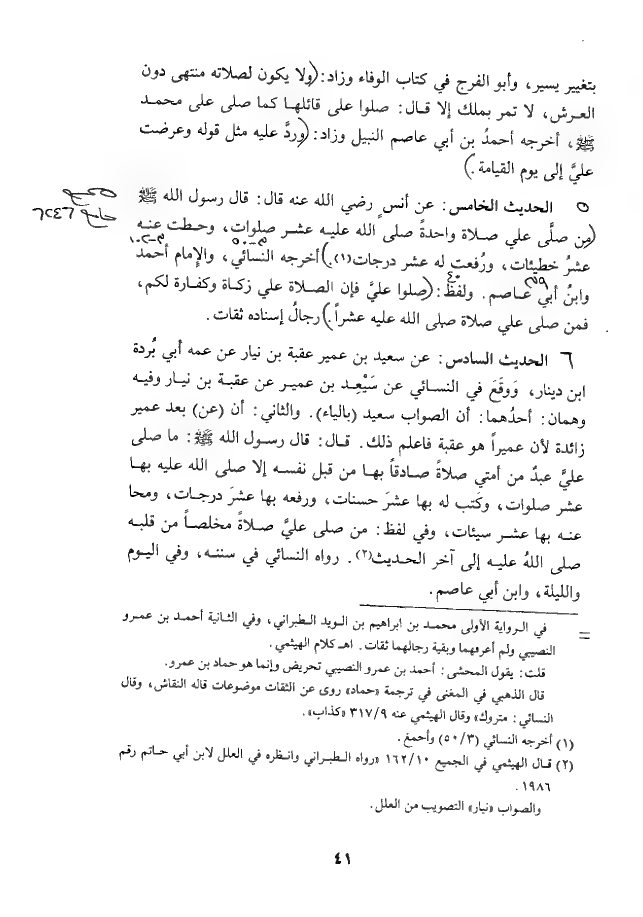 بتغيير يسير، وأبو الفرج في كتاب الوفاء وزاد: (ولا يكون لصلاته منتهى دون
العرش، لا تمر بملك إلا قال: صلوا على قائلها كما صلى على محمد
ﷺ، أخرجه أحمدُ بن أبي عاصم النبيل وزاد: (وردَّ عليه مثل قوله وعرضت
عليَّ إلى يوم القيامة.)
٥ الحديث الخامس: عن أنسٍ رضي الله عنه قال: قال رسول الله ﷺ
صحيح
(من صلَّى علي صلاة واحدةً صلى الله عليه عشر صلوات، وحطت عنه
جامع ٦٢٤٦
عشرُ خطيئات، ورُفعت له عشر درجات(١).) أخرجه النسائي، والإمام أحمدُ
وابنُ أبي عاصم. ولفظُ: (صلوا عليَّ فإن الصلاة علي زكاة وكفارة لكم،
فمن صلى علي صلاة صلى الله عليه عشراً.) رجالُ إسناده ثقات.
٦ الحديث السادس: عن سعيد بن عمير عقبة بن نيار عن عمه أبي بُردة
ابن دينار، وَوقَعَ في النسائي عن سَيْعِد بن عمير عن عقبة بن نيار وفيه
وهمان: أحدُهما: أن الصواب سعيد (بالياء). والثاني: أن (عن) بعد عمير
زائدة لأن عميراً هو عقبة فاعلم ذلك. قال: قال رسول الله ﷺ: ما صلى
عليَّ عبدٌ من أمتي صلاةً صادقاً بها من قبل نفسه إلا صلى الله عليه بها
عشر صلوات، وكَتب له بها عشرَ حسنات، ورفعه بها عشرَ درجات، ومحا
عنه بها عشر سيئات، وفي لفظ: من صلى عليَّ صلاةً مخلصاً من قلبه
صلى اللهُ عليه إلى آخر الحديث(٢). رواه النسائي في سننه، وفي اليوم
والليلة، وابن أبي عاصم.
= في الرواية الأولى محمد بن ابراهيم بن الويد الطبراني، وفي الثانية أحمد بن عمرو
النصيبي ولم أعرفهما وبقية رجالهما ثقات. اهـ كلام الهيثمي.
قلت: يقول المحشى: أحمد بن عمرو النصيبي تحريض وإنما هو حماد بن عمرو.
قال الذهبي في المغنى في ترجمة «حماد» روى عن الثقات موضوعات قاله النقاش، وقال
النسائي: متروك» وقال الهيثمي عنه ٣١٧/٩ «كذاب».
(١) أخرجه النسائي (٥٠/٣) وأحمغ.
(٢) قال الهيثمي في الجميع ١٦٢/١٠ «رواه الطبراني وانظره في العلل لابن أبي حاتم رقم
١٩٨٦.
والصواب «نيار» التصويب من العلل.
٤١